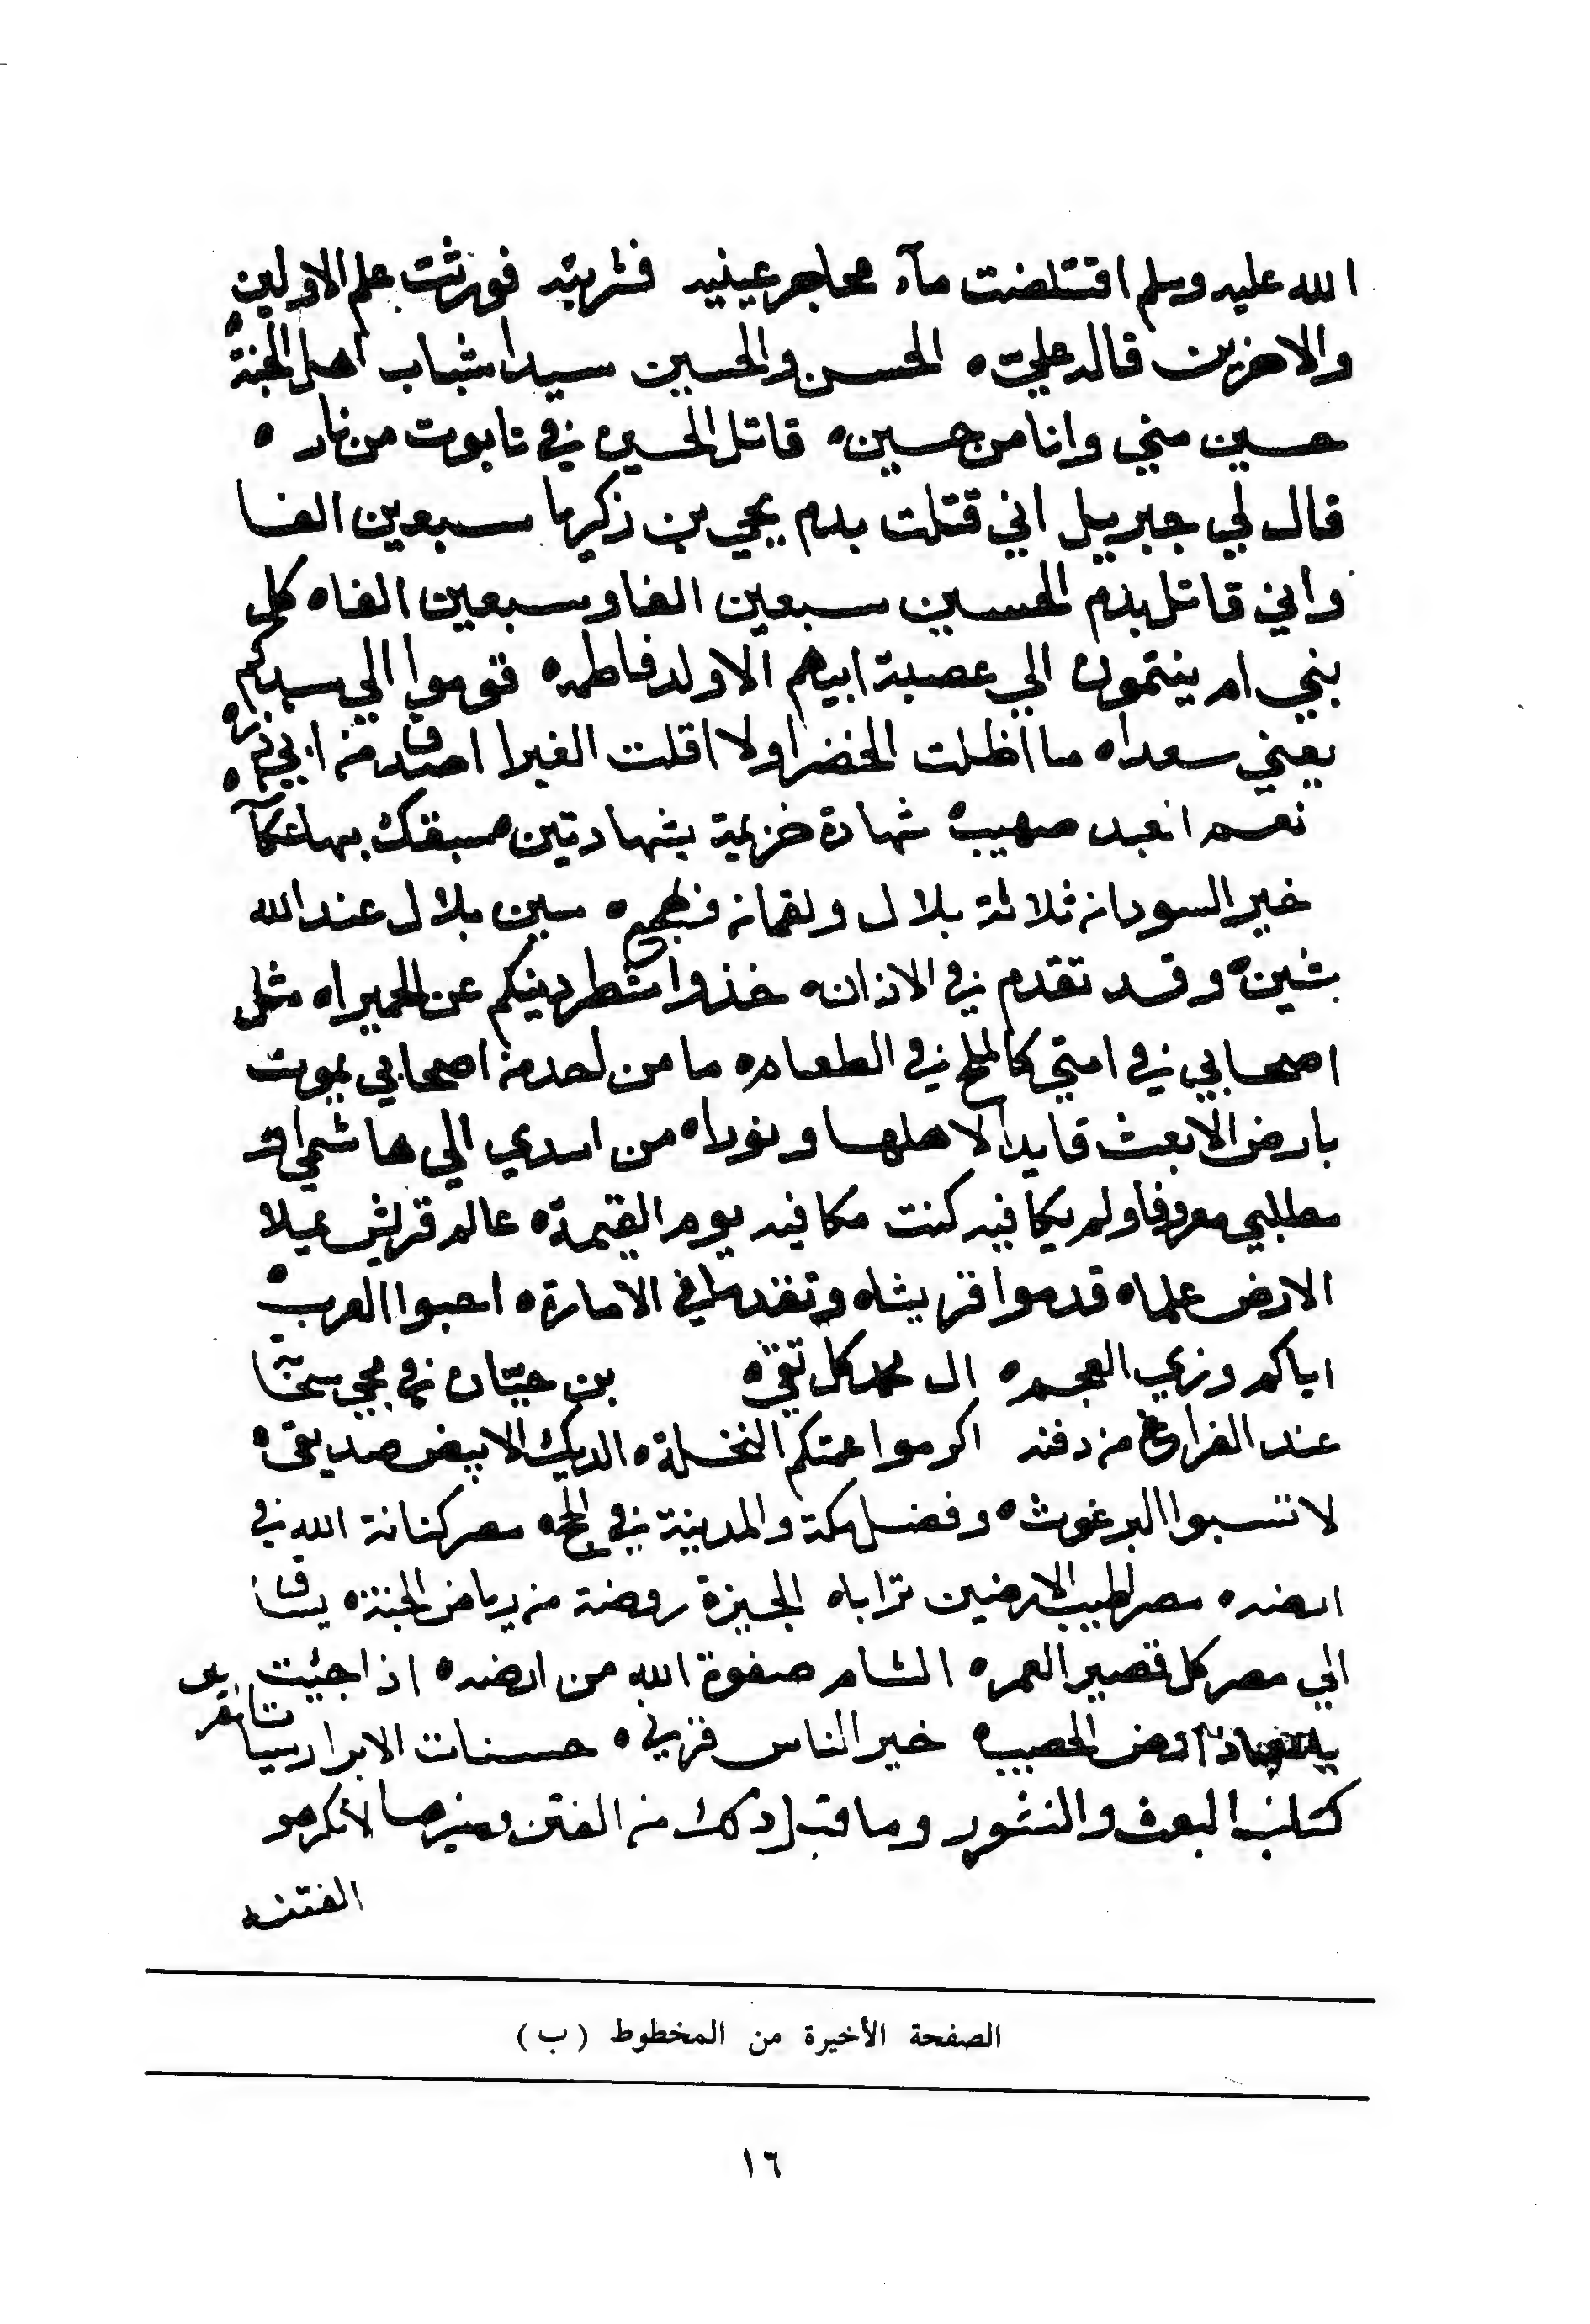 الله عليه وسلم اقتلصت مآء محاجر عينيه فشربته فورثت علم الاولين
والاخرين قاله علي ه الحسن والحسين سيدا شباب اهل الجنة
حسين مني وانا من حسين ه قاتل الحسين في تابوت من نار ه
قال لي جبريل اني قتلت بدم يحيي بن زكريا سبعين الفا
واني قاتل بدم الحسين سبعين الفا وسبعين الفا ه كل
بني ام ينتمون الي عصبة ابيهم الا ولد فاطمه ه قوموا الي سيدكم
يعني سعدا ه ما اظلت الخضرا ولا اقلت الغبرا اصدق من ابي ذر ه
نعم العبد صهيب ه شهادة خزيمة بشهادتين ه سبقك بها عكا
خير السودان ثلاثة بلال ولقمان ومهجع ه سين بلال عند الله
شين ه وقد تقدم في الاذان ه خذوا شطر دينكم عن الحميرا ه مثل
اصحابي في امتي كالملح في الطعام ه ما من احد من اصحابي يموت
بارض الا بعث قايدا لاهلها ونورا ه من اسدي الي هاشمي او
مطلبي معروفا ولم يكافيه كنت مكافيه يوم القيمة ه عالم قريش يملا
الارض علما ه قدموا قريشا ه وتقدم في الامارة ه احبوا العرب ه
اياكم وزي العجم ه ال محمد كل تقي ه بن حبان في
عند الفراغ من دفنه اكرموا عمتكم النخلة ه الديك الابيض صديقي ه
لا تسبوا البرغوث ه وفضل مكة والمدينة في الحج ه مصر كنانة الله في
ارضه ه مصر اطيب الارضين ترابا ه الجيزة روضة من رياض الجنة ه يساق
الي مصر كل قصير العمر ه الشام صفوة الله من ارضه ه اذا جيت
ارض الحصيب ه خير الناس قرني ه حسنات الابرار سيات المقربين
كتاب البعث والنشور وما قبل ذلك من الفتن وغيرها لا تكرهوا
الفتنه
الصفحة الأخيرة من المخطوط (ب)
١٦